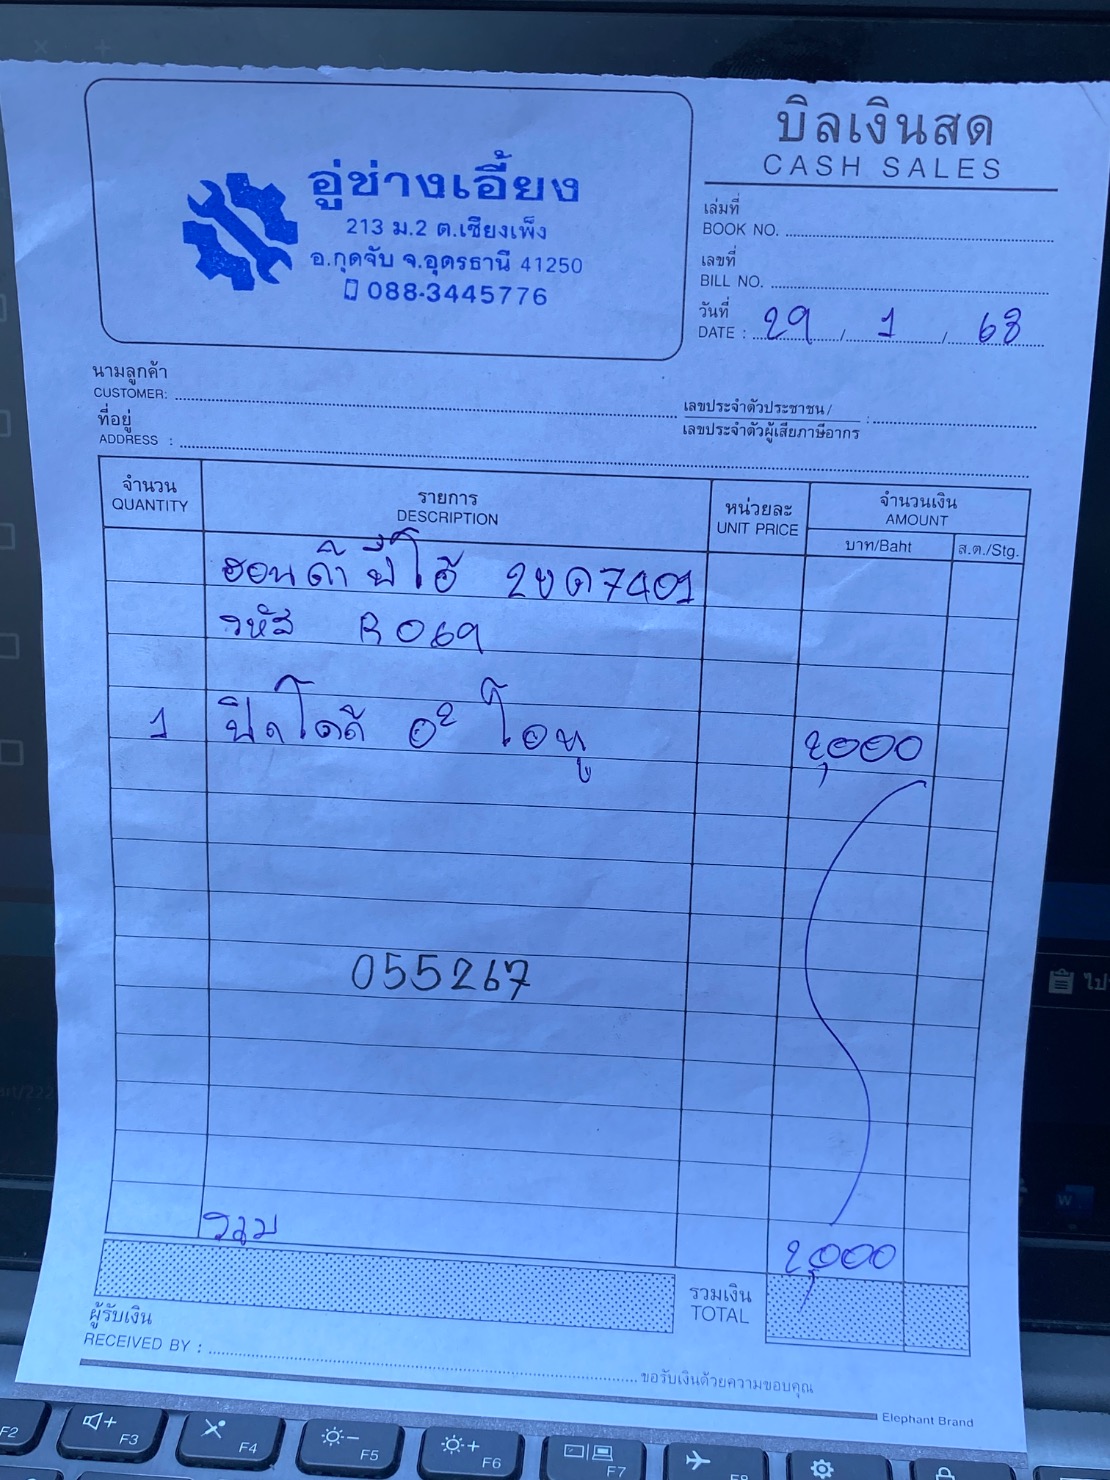 บิลเงินสด
CASH SALES
อู่ช่างเอี้ยง
213 ม.2 ต.เชียงเพ็ง
อ.กุดจับ จ.อุดรธานี 41250
088-3445776
เล่มที่
BOOK NO.
เลขที่
BILL NO.
วันที่
DATE : 29 / 1 / 68
นามลูกค้า
CUSTOMER:
เลขประจำตัวประชาชน/
เลขประจำตัวผู้เสียภาษีอากร :
ที่อยู่
ADDRESS :
จำนวน รายการ หน่วยละ จำนวนเงิน
QUANTITY DESCRIPTION UNIT PRICE AMOUNT
บาท/Baht ส.ต./Stg.
ฮอนด้า บีโอ้ 2ขด7401
รหัส R069
1 0² โอทู 2,000
055267
รวม 2,000
รวมเงิน
TOTAL
ผู้รับเงิน
RECEIVED BY :
ขอรับเงินด้วยความขอบคุณ
Elephant Brand
F2 F3 F4 F5 F6 F7 F8
W